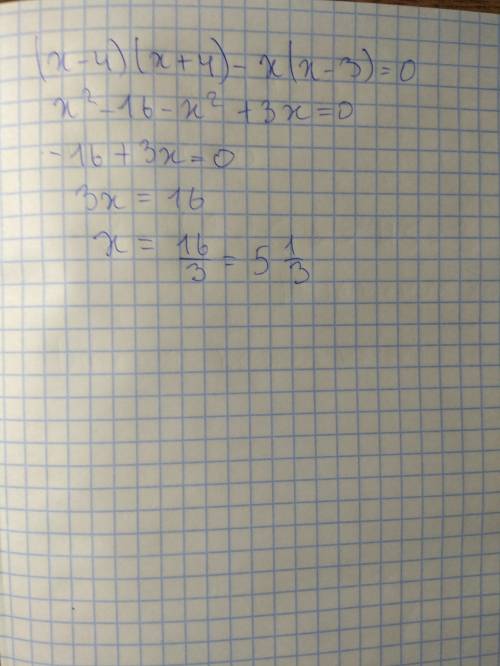 (x-4)(x+4)-x(x-3)=0
x²-16-x²+3x=0
-16+3x=0
3x=16
x=16/3=5 1/3